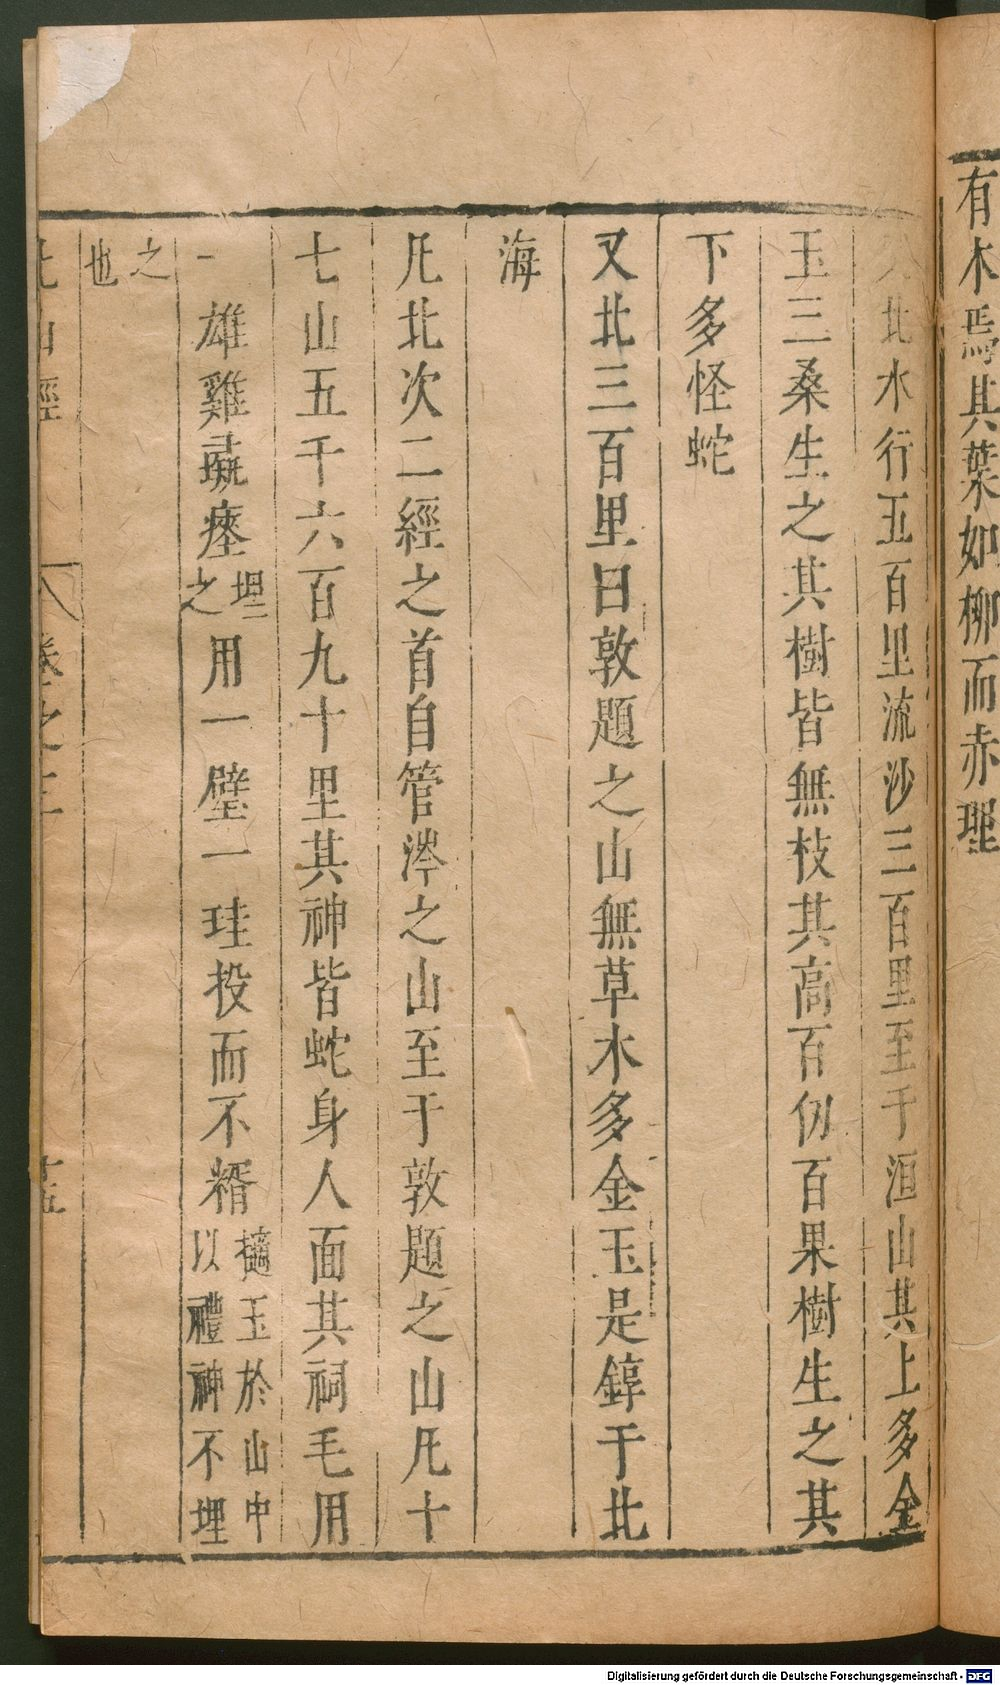 有木焉其葉如柳而赤理
又北水行五百里流沙三百里至于洹山其上多金
玉三桑生之其樹皆無枝其高百仞百果樹生之其
下多怪蛇
又北三百里曰敦題之山無草木多金玉是錞于北
海
凡北次二經之首自管涔之山至于敦題之山凡十
七山五千六百九十里其神皆蛇身人面其祠毛用
一雄雞彘瘞埋之用一璧一珪投而不糈擿玉於山中以禮神不埋
之也
北山經 卷之三 十五
Digitalisierung gefördert durch die Deutsche Forschungsgemeinschaft - DFG